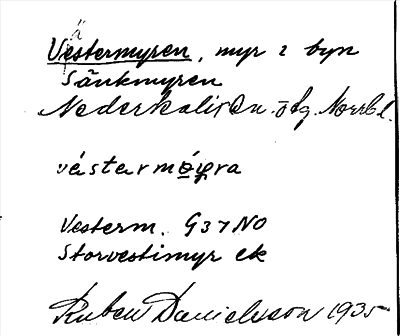 Västermyren, myr i byn
Sänkmyren
Nederkalix sn. Norrb l.
västarmy̨ra
Vesterm. G37NO
Storvestimyr ek
Ruben Danielsson 1935